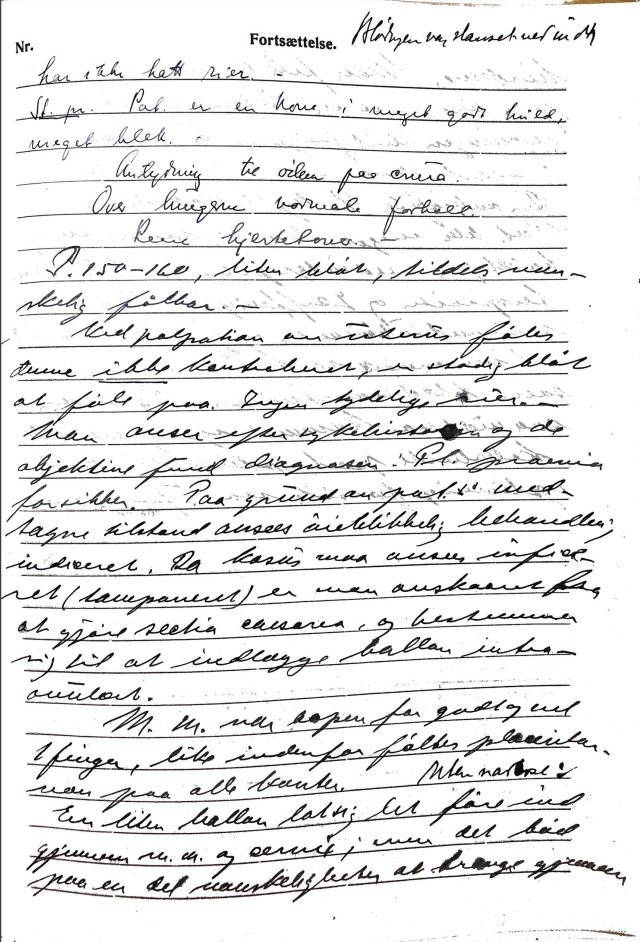 Nr.
Fortsættelse.
Blødningen var stanset ved
har ikke hatt rier. -
St. pr. Pat. er en kone i meget godt huld,
meget blek. -
Antydning til ødem paa crura.
Over lungerne normale forhold.
Rene hjertetoner.
P. 150-160, liten bløt, tildels van-
skelig følbar. -
Ved palpation av uterus føles
denne ikke kontrahert, er stadig bløt
at føle paa. Ingen tydelige rier. -
Man anser efter sykehistorien og de
objektive fund diagnosen: Pl. prævia
for sikker. Paa grund av pat.s' med-
tagne tilstand ansees øieblikkelig behandling
indiceret. Da kasus maa ansees inficie-
ret (tamponeret) er man avskaaret fra
at gjøre sectio caesarea, og bestemmer
sig til at indlægge ballon intra-
ovulært.
M. m. var aapen for godt og vel
1 finger, like indenfor føltes placentar-
væv paa alle kanter. Uten narkose:
En liten ballon lot sig let føre ind
gjennem m. m. og cervix; men det bød
paa en del vanskeligheter at trænge gjennem